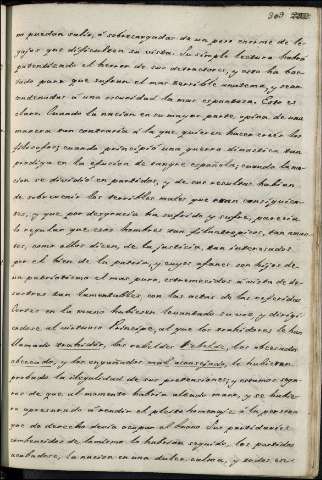 303
no puedan salir, ó sobrecargadas de un peso enorme de le-
gajos que dificulten su vista. Su simple lectura habrá
patentizado el horror de sus detractores, y esto ha bas-
tado para que sufran el mas terrible anatema, y sean
condenadas á una oscuridad la mas espantosa. Esto es
claro. Cuando la nacion en su mayor parte opina de una
manera tan contraria á la que quieren hacer creer los
filosofos; cuando principió una guerra dinastica tan
prodiga en la efusion de sangre española; cuando la na-
cion se dividió en partidos, y de sus resultas habian
de sobrevenir los terribles males que eran consiguien-
tes, y que por desgracia ha sufrido y sufre, parecia
lo regular que esos hombres tan filantropicos, tan aman-
tes, como ellos dicen, de la justicia, tan interesados
por el bien de la patria, y cuyos afanes son hijos de
un patriotismo el mas puro, estremecidos á vista de de-
sastres tan lamentables, con las actas de las referidas
Cortes en la mano hubiesen levantado su voz, y dirigi-
dose al virtuoso Principe, al que los traidores le han
llamado traidor, los rebeldes rebelde, los obcecados
obcecado, y los engañados mal aconsejado, le hubieran
probado la ilegalidad de sus pretensiones; y estamos segu-
ros de que al momento habria alzado mano, y se hubie-
ra apresurado á rendir el pleito homenaje á la persona
que de derecho debia ocupar el trono. Sus partidarios
convencidos de lo mismo le habrian seguido, los partidos
acabados, la nacion en una dulce calma, y todos en